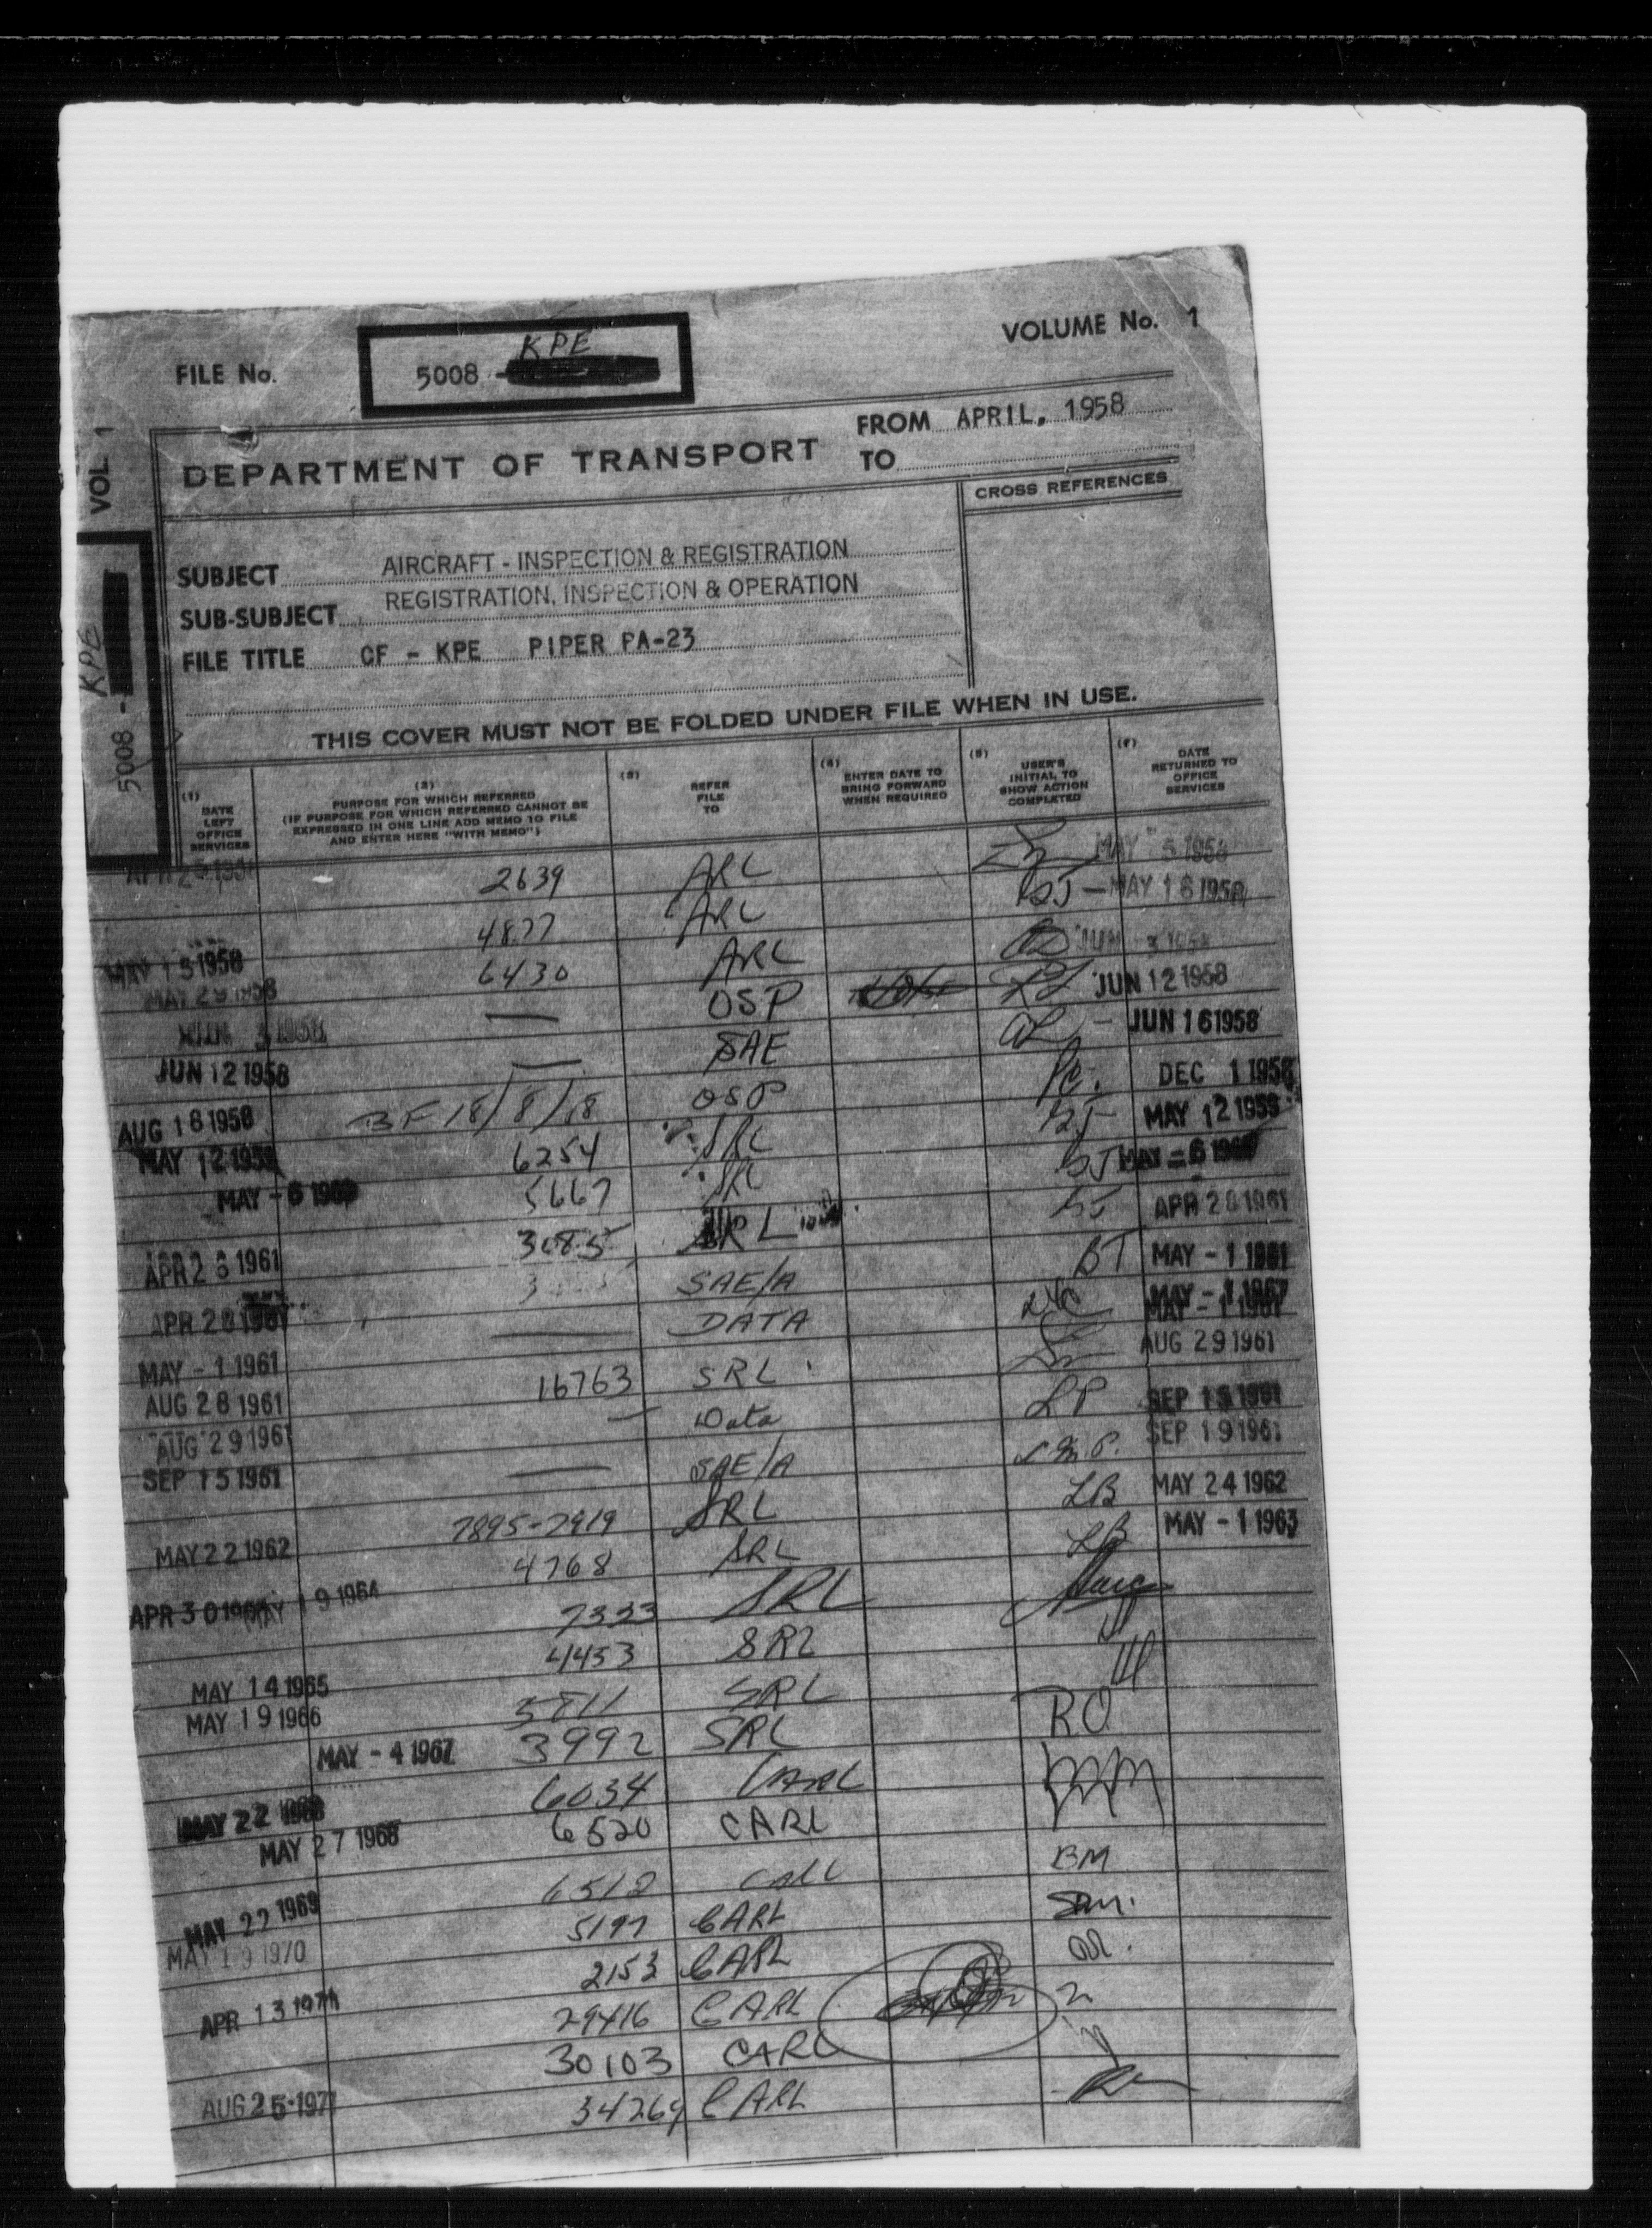 KPE
FILE No. 5008 - VOLUME No. 1
VOL 1
5008 - KPE
FROM APRIL, 1958
DEPARTMENT OF TRANSPORT TO
CROSS REFERENCES
SUBJECT AIRCRAFT - INSPECTION & REGISTRATION
SUB-SUBJECT REGISTRATION, INSPECTION & OPERATION
FILE TITLE CF - KPE PIPER PA-23
THIS COVER MUST NOT BE FOLDED UNDER FILE WHEN IN USE.
(1) DATE LEFT OFFICE SERVICES
(2) PURPOSE FOR WHICH REFERRED (IF PURPOSE FOR WHICH REFERRED CANNOT BE EXPRESSED IN ONE LINE ADD MEMO TO FILE AND ENTER HERE "WITH MEMO")
(3) REFER FILE TO
(4) ENTER DATE TO BRING FORWARD WHEN REQUIRED
(5) USER'S INITIAL TO SHOW ACTION COMPLETED
DATE RETURNED TO OFFICE SERVICES
2639 ARL MAY 5 1958
4877 ARL MAY 16 1958
MAY 15 1958 6430 ARL JUN 3 1958
MAY 29 1958 — OSP JUN 12 1958
JUN 3 1958 — SAE JUN 16 1958
JUN 12 1958 BF 18/8/18 OSP DEC 1 1958
AUG 18 1958 6254 SRL MAY 12 1959
MAY 12 1959 5667 SRL MAY - 6
MAY - 6 3085 SRL APR 28 1961
APR 26 1961 SAE/A BT MAY - 1 1961
APR 28 1961 — DATA MAY - 1
MAY - 1 1961 16763 SRL AUG 29 1961
AUG 28 1961 — Data LP SEP 15 1961
AUG 29 1961 — SAE/A SEP 19 1961
SEP 15 1961 7895-7919 SRL LB MAY 24 1962
MAY 22 1962 4768 SRL LB MAY - 1 1963
APR 30 MAY 19 1964 7333 SRL
4453 SRL
MAY 14 1965 5811 SRL
MAY 19 1966 3992 SRL R.O.
MAY - 4 1967 6034 CARL
MAY 22 6520 CARL
MAY 27 1968 6512 CARL BM
MAY 22 1969 5197 CARL
MAY 19 1970 2153 CARL
APR 13 1971 29416 CARL
30103 CARL
AUG 25 1971 34269 CARL